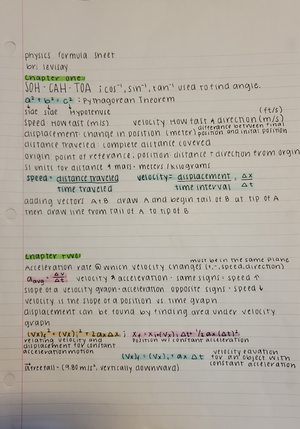 physics formula sheet
lori levisay
Chapter one:
SOH - CAH - TOA ; cos⁻¹, sin⁻¹, tan⁻¹ used to find angle.
a² + b² = c² : Pythagorean Theorem
side side hypotenuse
(ft/s)
speed - How fast (m/s) velocity - How fast & direction (m/s)
displacement - change in position (meter) difference between final position and initial position
distance traveled - complete distance covered
origin - point of reference, position - distance & direction from origin
SI units for distance & mass - meters / kilograms
speed = distance traveled / time traveled velocity = displacement / time interval , Δx / Δt
adding vectors A+B draw A and begin tail of B at tip of A
then draw line from tail of A to tip of B
Chapter Two:
must be in the same plane
Acceleration - rate @ which velocity changes (+, -, speed, direction)
a avg = Δv / Δt velocity & acceleration - same signs - speed ↑
slope of a velocity graph = acceleration opposite signs - speed ↓
velocity is the slope of a position vs time graph
displacement can be found by finding area under velocity
graph
(Vx)f² = (Vx)i² + 2axΔx ; Xf = Xi + (Vx)i Δt + ½ ax (Δt)²
relating velocity and displacement for constant acceleration motion
Position w/ constant acceleration
(Vx)f = (Vx)i + ax Δt velocity equation for an object with constant acceleration
a free fall = (9.80 m/s², vertically downward)